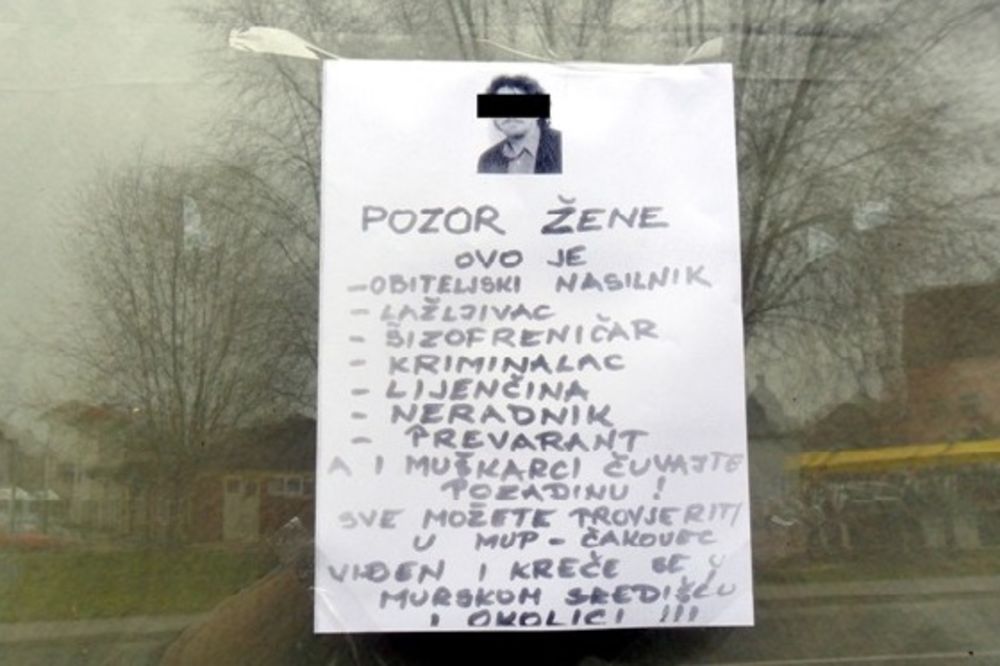 POZOR ŽENE
OVO JE
-OBITELJSKI NASILNIK
- LAŽLJIVAC
- ŠIZOFRENIČAR
- KRIMINALAC
- LIJENČINA
- NERADNIK
- PREVARANT
A I MUŠKARCI ČUVAJTE
POZADINU !
SVE MOŽETE PROVJERITI
U MUP - ČAKOVEC
VIĐEN I KREČE SE U
MURSKOM SREDIŠĆU
I OKOLICI !!!